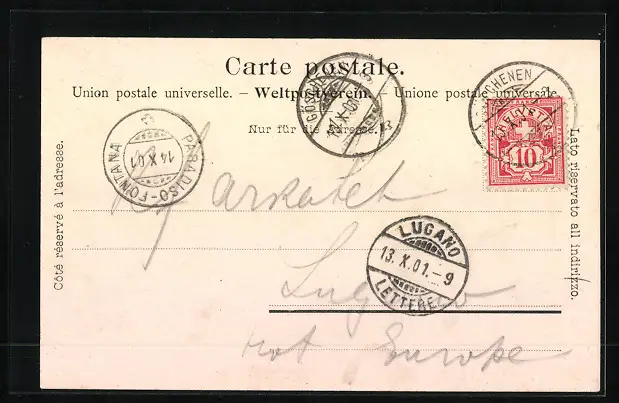 Carte postale.
Union postale universelle. – Weltpostverein. – Unione postale universale.
Nur für die Adresse.
Côté réservé à l'adresse.
Lato riservato all indirizzo.
GÖSCHENEN
HELVETIA
10
PARADISO-FONTANA
14.X.01
LUGANO
13.X.01.-9
LETTERE
Lugano
Europe